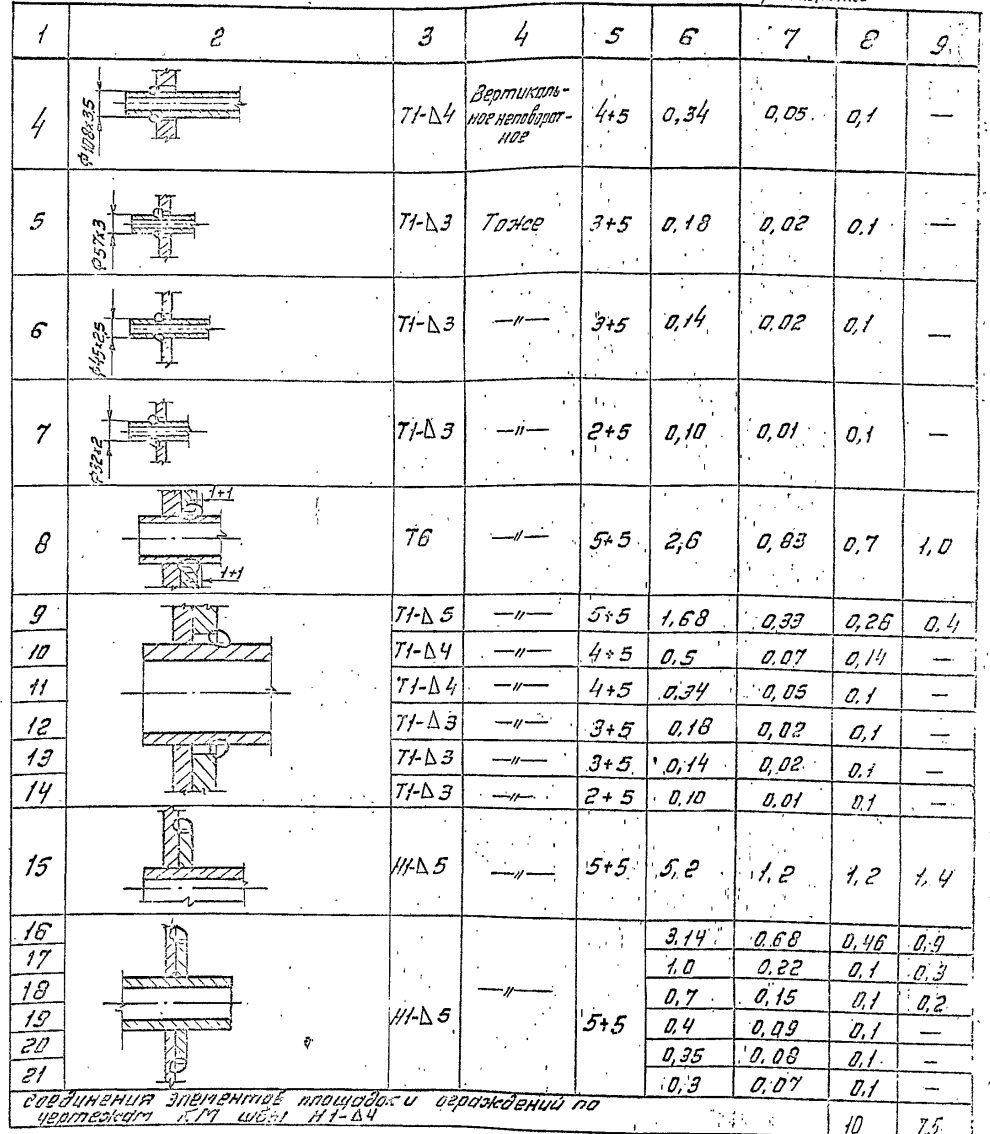 1 2 3 4 5 6 7 8 9
4 Ф108х3,5 Т1-Δ4 Вертикаль-
ное неповорот-
ное 4+5 0,34 0,05 0,1 —
5 Ф57х3 Т1-Δ3 Тоже 3+5 0,18 0,02 0,1 —
6 Ф45х2,5 Т1-Δ3 —〃— 3+5 0,14 0,02 0,1 —
7 Ф32х2 Т1-Δ3 —〃— 2+5 0,10 0,01 0,1 —
8 1+1 1+1 Т6 —〃— 5+5 2,6 0,83 0,7 1,0
9 Т1-Δ5 —〃— 5+5 1,68 0,33 0,26 0,4
10 Т1-Δ4 —〃— 4+5 0,5 0,07 0,14 —
11 Т1-Δ4 —〃— 4+5 0,34 0,05 0,1 —
12 Т1-Δ3 —〃— 3+5 0,18 0,02 0,1 —
13 Т1-Δ3 —〃— 3+5 0,14 0,02 0,1 —
14 Т1-Δ3 —〃— 2+5 0,10 0,01 0,1 —
15 Н1-Δ5 —〃— 5+5 5,2 1,2 1,2 1,4
16 3,14 0,68 0,46 0,9
17 1,0 0,22 0,1 0,3
18 —〃— 0,7 0,15 0,1 0,2
19 Н1-Δ5 5+5 0,4 0,09 0,1 —
20 0,35 0,08 0,1 —
21 0,3 0,07 0,1 —
соединения элементов площадок и ограждений по
чертежам КМ швы Н1-Δ4 10 7,5